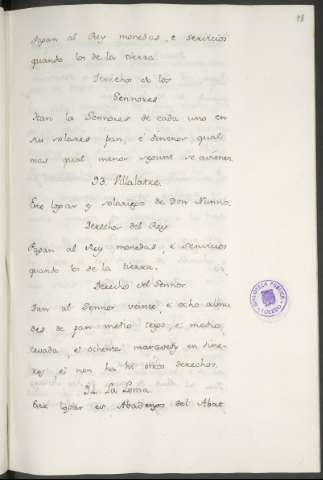 Pagan al Rey monedas, e servicios
quando los de la tierra.
Derechos de los
Sennores
Dan la Sennores de cada uno en
su solares pan, é dineros qual
mas qual menor segunt se avienen
93. Villalatxe.
Este logar es solariego de Don Nunno.
Derechos del Rey
Pagan al Rey monedas, e servicios
quando los de la tierra.
Derechos del Sennor
Dan al Sennor veinte, e ocho almu
des de pan medio trigo, e medio
cevada, et ochenta maravedis en dine-
ros, et non ha hi otros derechos.
94. La Loma.
Este logar es Abadengo del Abat
BIBLIOTECA PUBLICA
TOLEDO